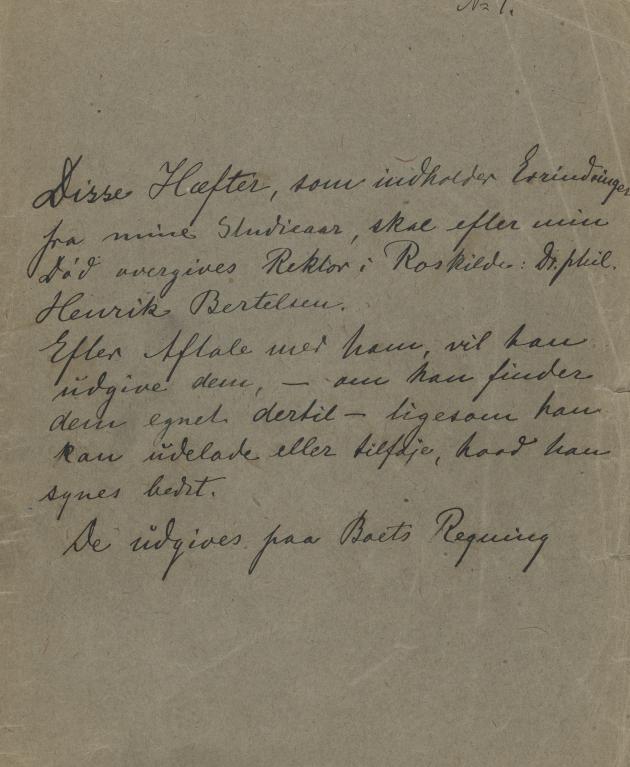 № 1.
Disse Hæfter, som indholder Erindringer
fra mine Studieaar, skal efter min
Død overgives Rektor i Roskilde: Dr. phil.
Henrik Bertelsen.
Efter Aftale med ham, vil han
udgive dem, — om han finder
dem egnet dertil — ligesom han
kan udelade eller tilføje, hvad han
synes bedst.
De udgives paa Boets Regning